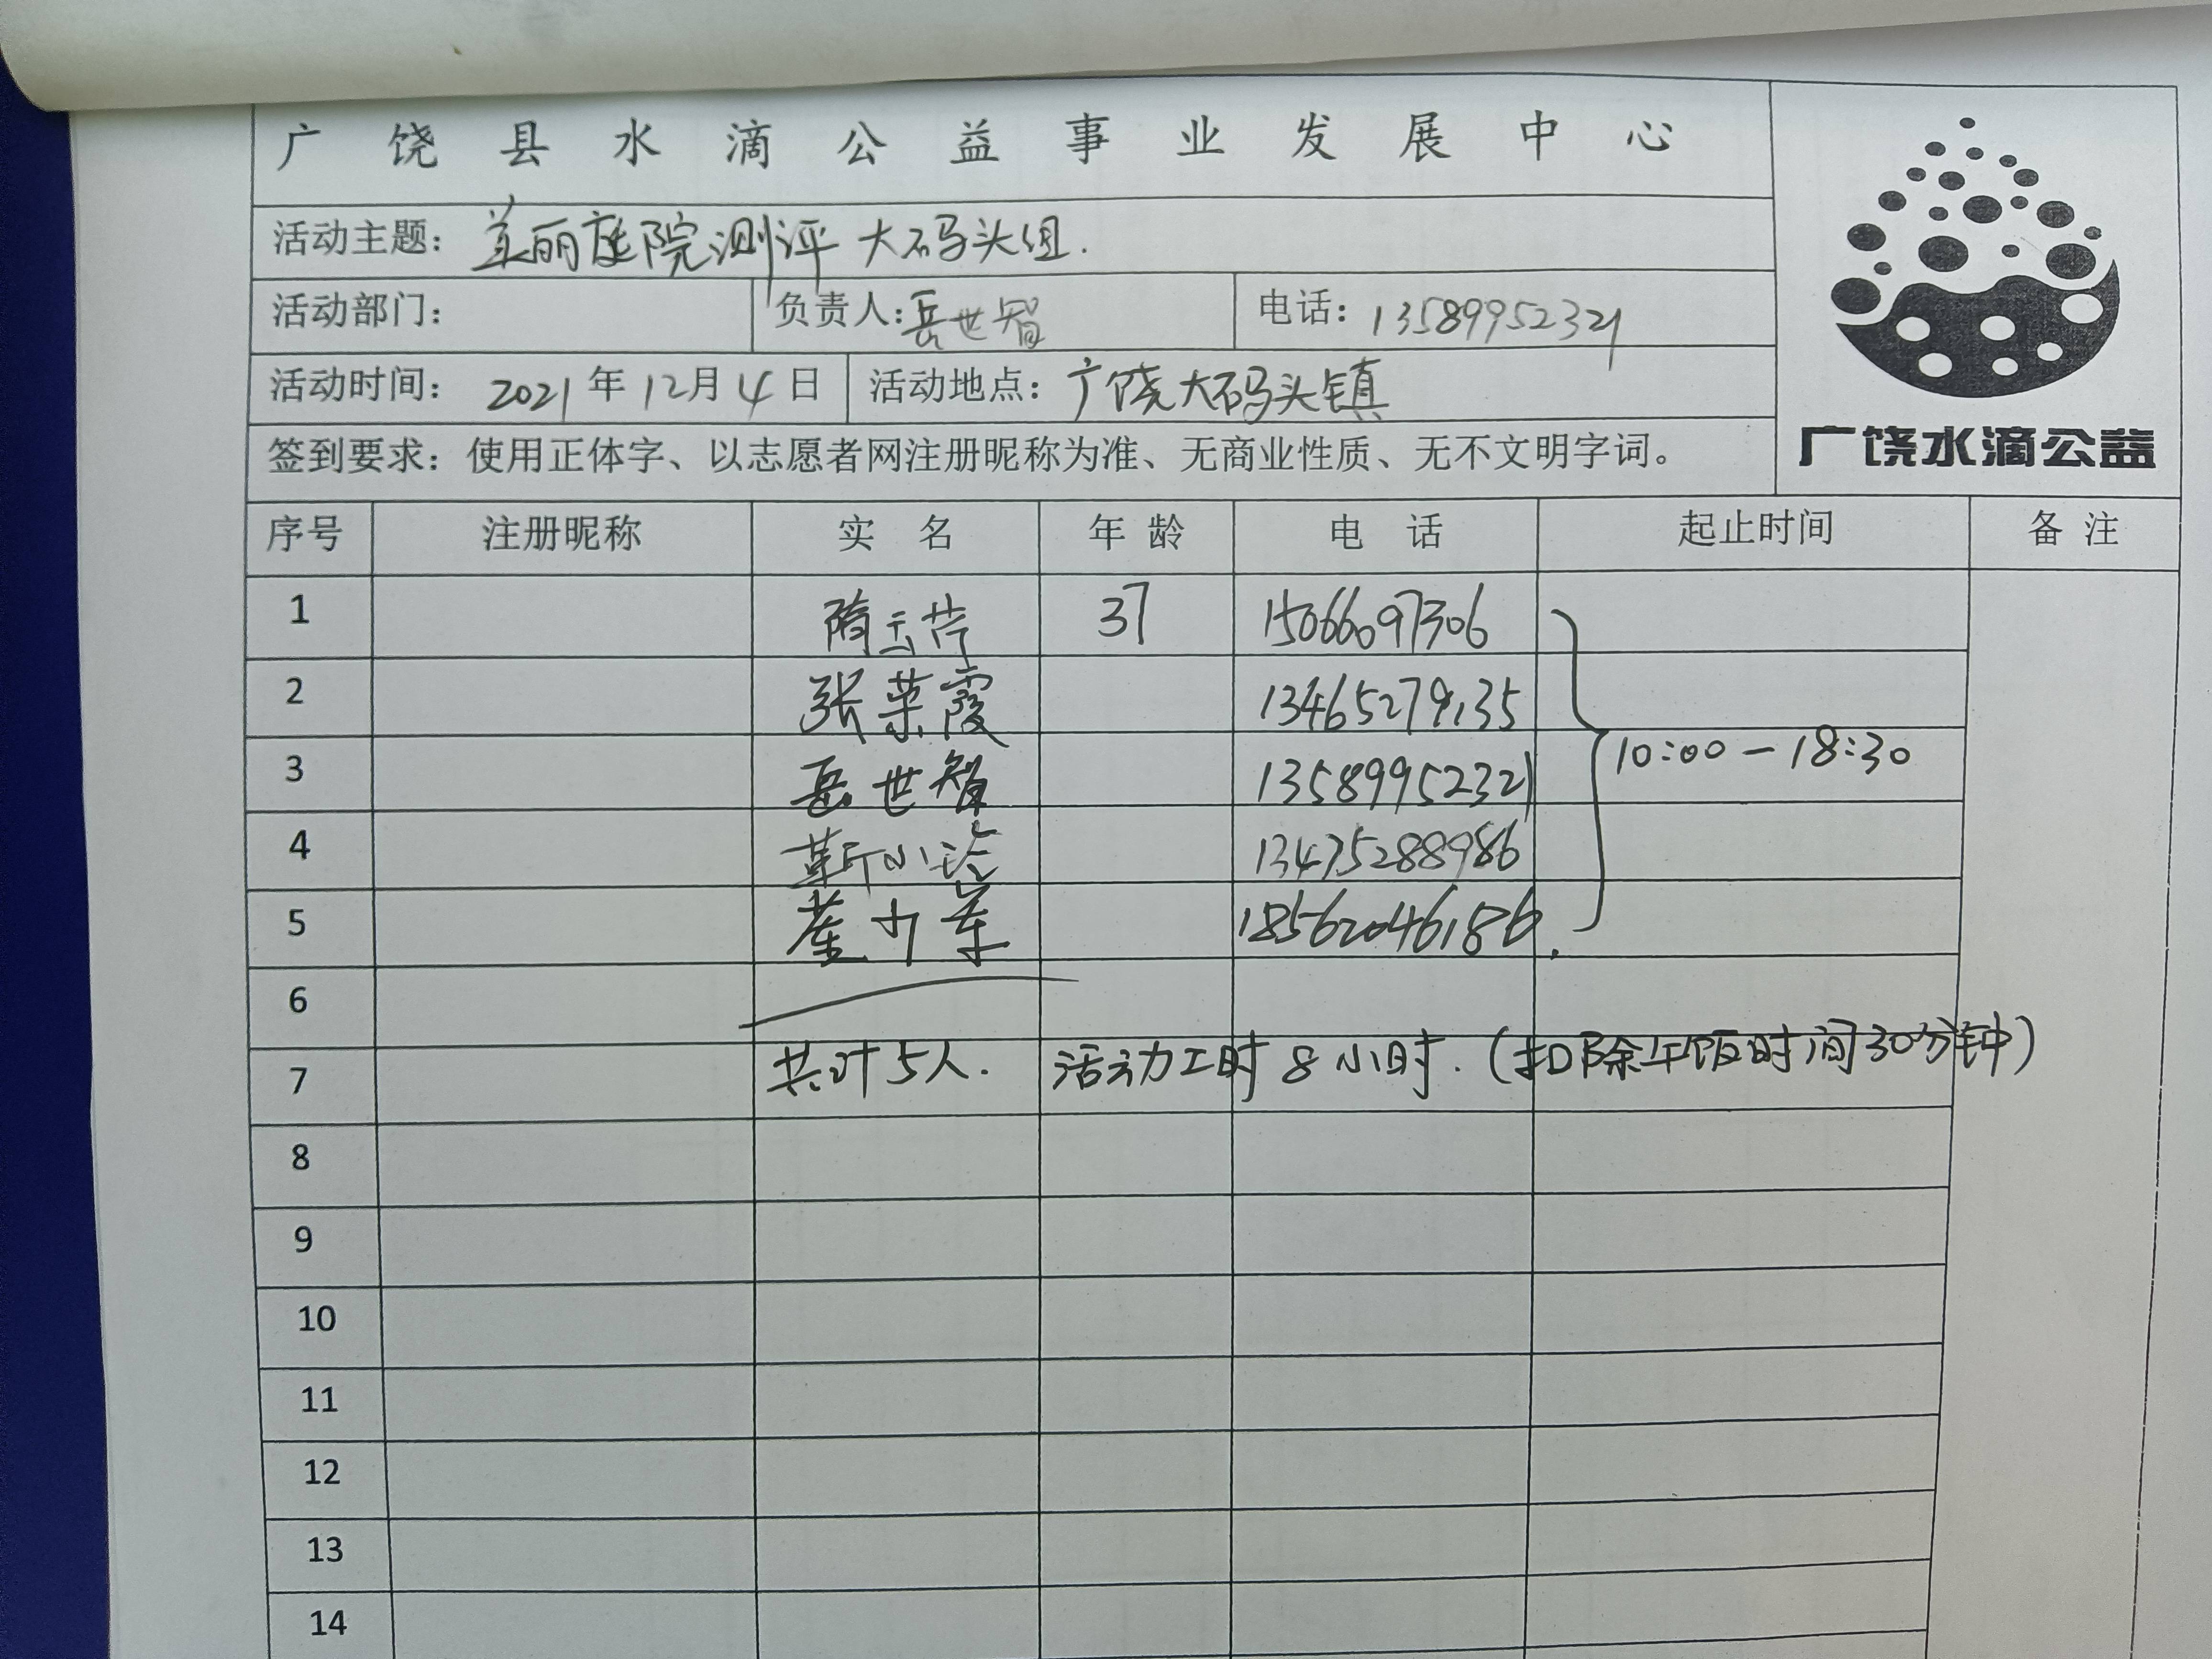 广饶县水滴公益事业发展中心
活动主题：美丽庭院测评 大码头组.
活动部门： 负责人：岳世智 电话：13589952321
活动时间：2021年12月4日 活动地点：广饶大码头镇
签到要求：使用正体字、以志愿者网注册昵称为准、无商业性质、无不文明字词。
广饶水滴公益
序号 注册昵称 实名 年龄 电话 起止时间 备注
1 隋云芹 37 15066097306
2 张荣霞 13465279135
3 岳世智 13589952321 10:00－18:30
4 靳小 13475288986
5 董 军 18562046186.
6
7 共计5人. 活动工时8小时.（扣除午饭时间30分钟）
8
9
10
11
12
13
14